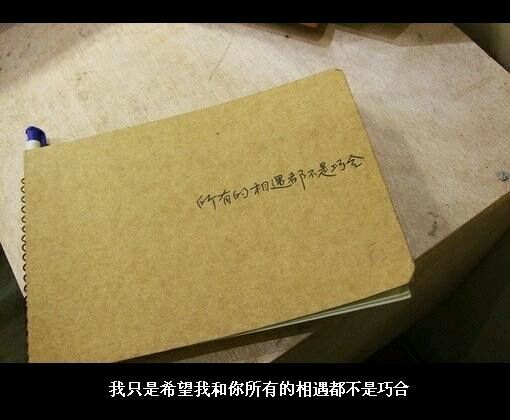 所有的相遇都不是巧合
我只是希望我和你所有的相遇都不是巧合